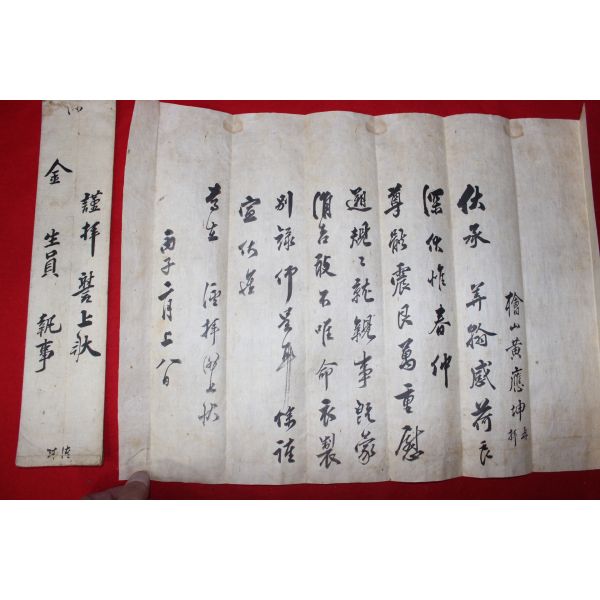 檜山黃應坤
伏承 華翰感荷良
深伏惟春仲
尊體震艮萬重慰
遡規〻就親事旣蒙
涓吉敢不唯命衣製
別錄仰呈耳餘謹
宣伏惟
尊 謹拜謝上狀
丙子二月上八日
謹拜 謝上狀
金 生員 執事